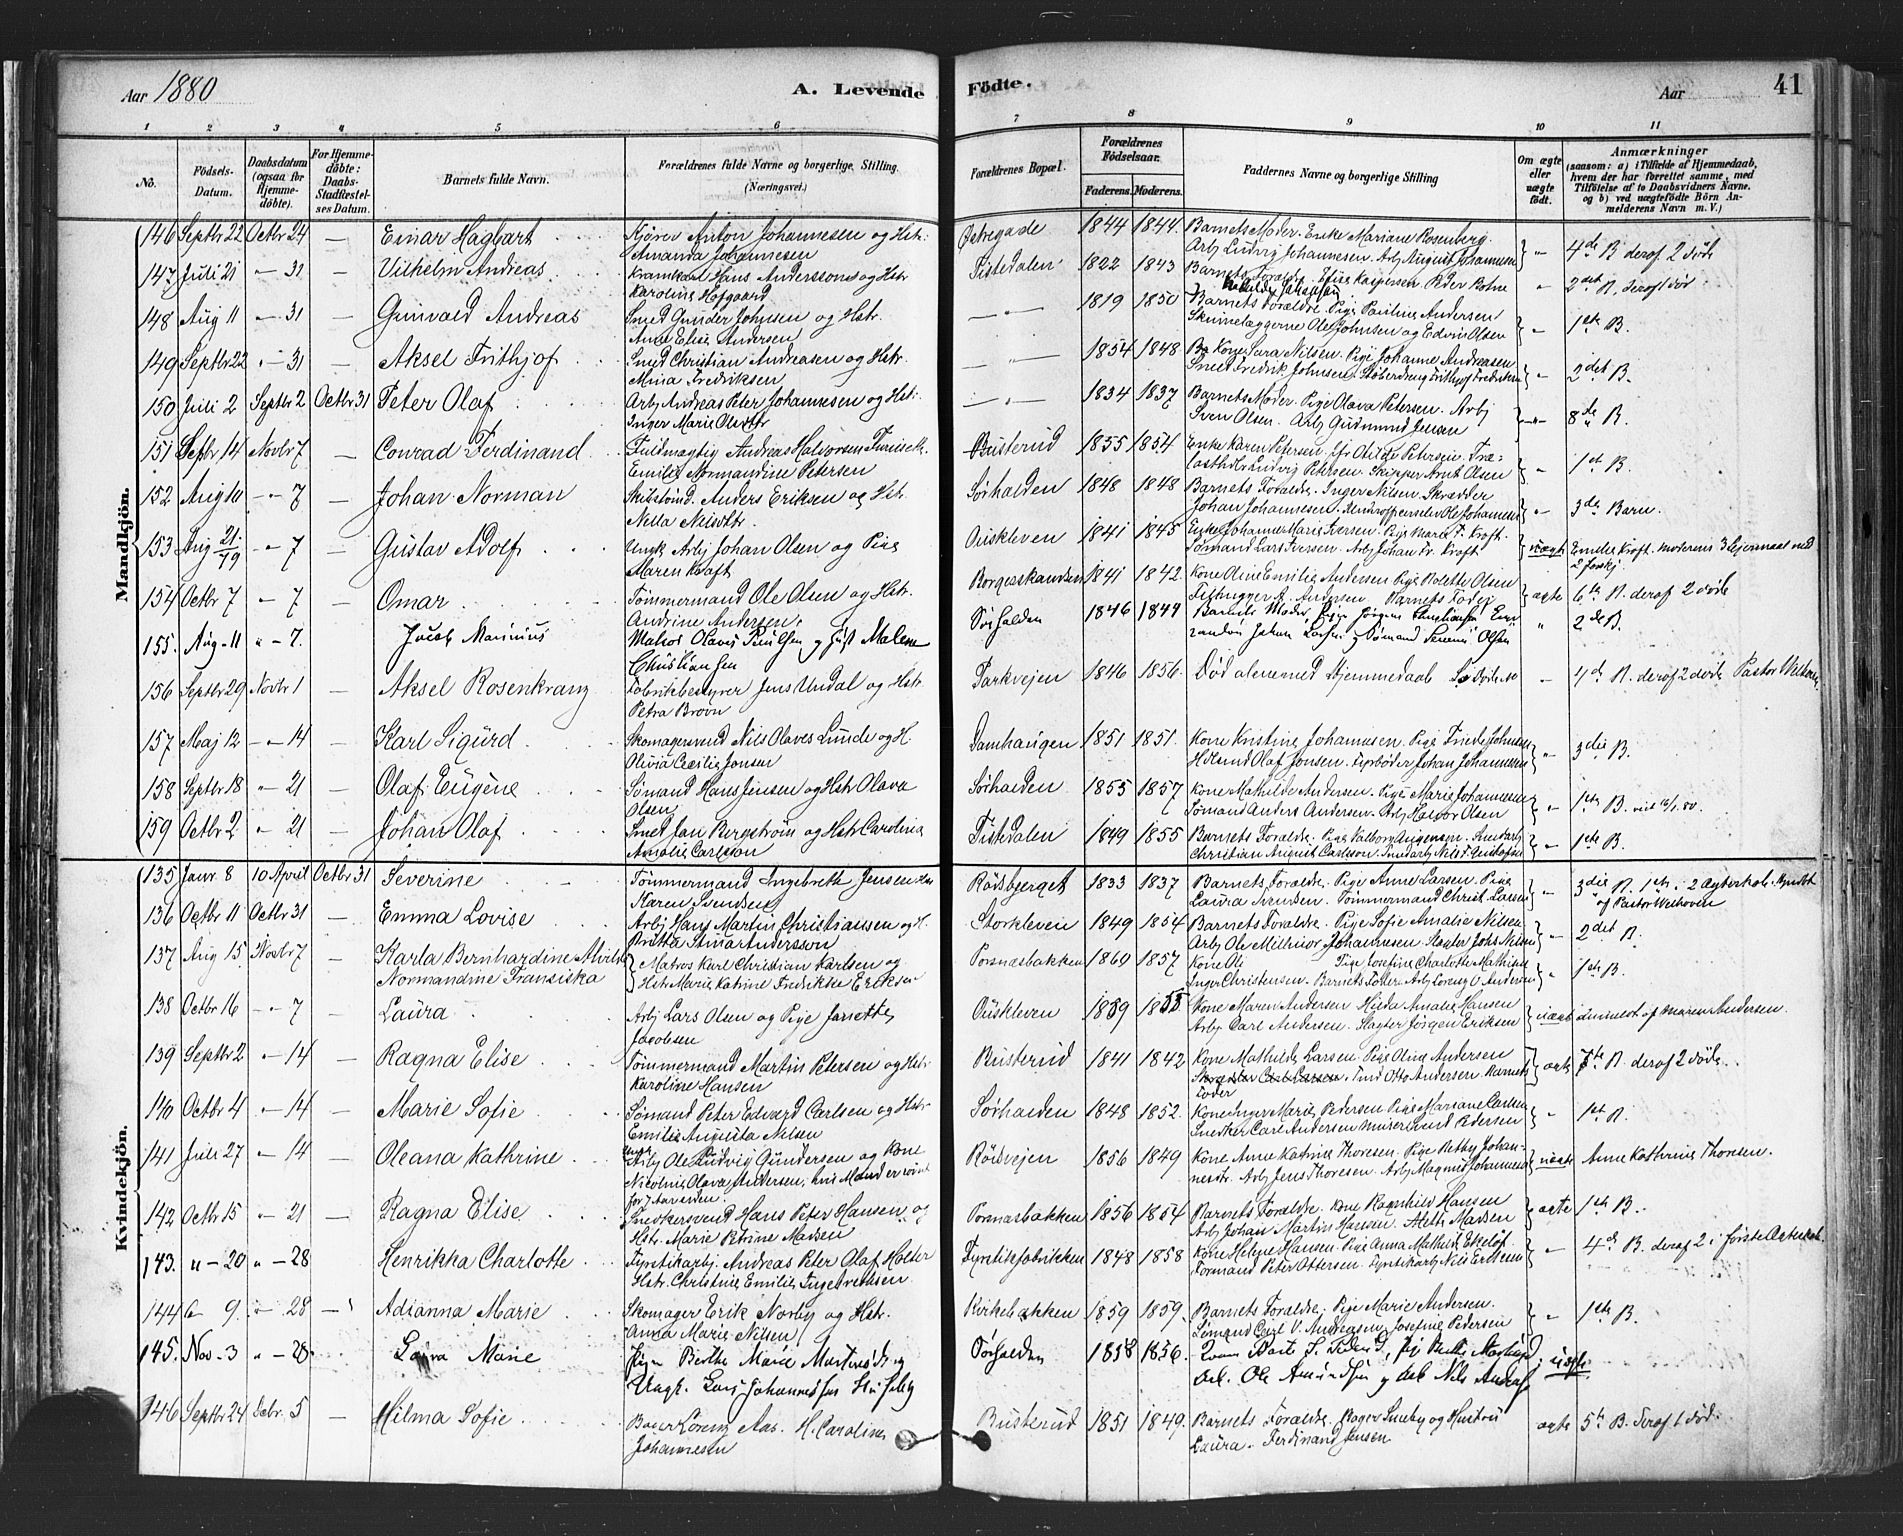 Aar 1880
A. Levende
Födte.
Aar
41
1 2 3 4 5 6 7 8 9 10 11
No.
Födsels-Datum.
Daabsdatum (ogsaa for Hjemme-döbte).
For Hjemme-döbte: Daabs-Stadfæstel-ses Datum.
Barnets fulde Navn.
Forældrenes fulde Navne og borgerlige Stilling. (Næringsvei.)
Forældrenes Bopæl.
Forældrenes Födselsaar.
Faderens. Moderens.
Faddernes Navne og borgerlige Stilling
Om ægte eller uægte födt.
Anmærkninger
(saasom: a) i Tilfælde af Hjemmedaab, hvem der har forrettet samme, med Tilföielse af to Daabsvidners Navne. og b) ved uægtefödte Börn An-melderens Navn m. V.)
Mandkjön.
146 Septbr 22 Octbr 24 — Einar Hagbart Kjörer Anton Johannesen og Hstr. Amanda Johannesen Østregade 1844 1844. Barnets Moder. Enke Mariane Rosenberg. Arb Ludvig Johannesen. Arb August Johannesen „ 4de B deraf 2 döde
147 Juli 21 „ 31 — Vilhelm Andreas Hans Anderssen og Hstr Karoline Hofgaard Tistedalen 1822 1843 Barnets Forældre. Kaspersen. Peder „ 2det B. deraf 1 död
148 Aug 11 „ 31 — Gunvald Andreas Smed Gunder Johnsen og Hstr. Anne Elise Andersen — „ — 1819 1850 Barnets Forældre. Pige Pauline Andersen Ole Johnsen og Edvin Olsen „ 1ste B.
149 Septbr 22 „ 31 — Aksel Frithjof Smed Christian Andreasen og Hstr. Mina Fredriksen — „ — 1854 1848 Kone Sara Nilsen. Pige Johanne Andreasen Smed Fredrik Johnsen. Frithjof Fredriksen „ 2det B.
150 Juli 2 Septbr 2 Octbr 31 Peter Olaf Arb Andreas Peter Johannesen og Hstr. Inger Marie Olsdtr — „ — 1834 1837 Barnets Moder. Pige Olava Petersen. Arbj Sven Olsen. Arb Gudmund Jensen „ 8de B.
151 Septbr 14 Novbr 7 — Conrad Ferdinand Fuldmægtig Andreas Halvorsen Emilie Normandine Petersen Busterud 1855 1854 Enke Karen Petersen. Ludvig Petersen. Skipper Arnt Olsen „ 1ste B.
152 Aug 10 „ 7 — Johan Norman Anders Eriksen og Hstr. Nilla Nilsdtr. Sörhalden 1848 1848 Barnets Forældre. Inger Nilsen. Skrædder Johan Johannesen. Ole Johannesen „ 3de Barn.
153 Aug 21/79 „ 7 — Gustav Adolf Ungk Arbj Johan Olsen og Pige Maren Kraft Ouskleven 1841 1845 Enke Johanne Marie Iversen. Pige Maren F. Kraft. Sömand Lars Iversen. Arbj Johan Fr. Kraft uægte Emelie Kraft. moderens 3 Leiermaal med 2 forskj
154 Octbr 7 „ 7 — Omar Tömmermand Ole Olsen og Hstr. Andrine Andersen. Borgerskandsen 1841 1842. Kone Oline Emilie Andersen Pige Bolette Olsen A. Andersen Barnets Fader ægte 6te B. deraf 2 döde
155. Aug. 11 „ 7. Jacob Marinius Matros Olaus Paulsen og Hst Malene Christiansen Sörhalden 1846 1849 Barnets Moder, Pige Jörgine Johan Larsen og Sömand Olsen „ 2de B.
156 Septbr 29 Novbr 1 — Aksel Rosenkranz Fabrikbestyrer Jens Undal og Hstr. Petra Brovn Parkvejen 1846 1856. Död alene med Hjemmedaab Se döde No „ 4de B. deraf 2 döde Pastor Welhaven
157 Maj 12 „ 14 — Karl Sigurd Skomagersvend Nils Olaves Lunde og H. Olivia Cecilie Jonsen Damhaugen 1851 1851. Kone Kristine Johannesen. Pige Johnsen Olaf Jonsen. Fyrböder Johan Johannesen „ 3die B.
158 Septbr 18 „ 21 — Olaf Eugene Sömand Hans Jensen og Hstr Olava Olsen Sörhalden 1855 1857 Kone Mathilde Andersen. Pige Marie Johannesen Sömand Anders Andersen. Arbj Halvor Olsen „ 1ste B.
159 Octbr 2 „ 21 — Johan Olaf Smed Jan Bergström og Hstr Carolina Amalie Carlsson Tistedalen 1849 1855 Barnets Forældre. Pige Valborg Christian August Carlsson. „ 1ste B.
Kvindekjön.
135 Janr 8 10 April Octbr 31 Severine Tömmermand Ingebreth Jensen Hstr Karen Svendsen Rödsbjerget 1833 1837 Barnets Forældre. Pige Anne Larsen. Pige Laura Svendsen. Tömmermand Christ. Larsen „ 3die B. 1ste i 2 af Pastor Welhaven
136 Octbr 11 Octbr 31 — Emma Lovise Arbj Hans Martin Christiansen og H. Britta Stina Andersson Storkleven 1849 1854 Barnets Forældre. Pige Sofie Amalie Nilsen Arbj Ole Johannesen. Johs Nilsen „ 2det B.
137 Aug 15 Novbr 7 — Karla Bernhardine Alvilde Normandine Fransiska Matros Karl Christian Karlsen og Hstr Marie Katrine Fredrikke Eriksen Porsnæsbakken 1860 1857 Kone Pige Josefine Charlotte Mathisen Inger Christensen. Barnets Fader. Arbj Lorens „ 1ste B.
138 Octbr 16 „ 7 — Laura Arbj Lars Olsen og Pige Janette Jacobsen Ouskleven 1839 1853. Kone Maren Andersen Hilda Amalie Hansen Arbj Carl Andersen. Slagter Jörgen Eriksen uægte anmeldt af Maren Andersen.
139 Septbr 2 „ 14 — Ragna Elise Tömmermand Martin Petersen og Hstr Karoline Hansen Busterud 1841 1842 Kone Mathilde Larsen. Pige Oline Andersen Otto Andersen. Barnets Fader ægte 7de B. deraf 2 döde.
140 Octbr 4 „ 14 — Marie Sofie Sömand Peter Edvard Carlsen og Hstr Emilie Augusta Nilsen Sörhalden 1848 1852. Kone Inger Marie Pedersen Pige Mariane Carlsen Snedker Carl Andersen Murersvend Pedersen „ 1ste B.
141 Juli 27 „ 14 — Oleana Kathrine Ungk. Arbj Ole Ludvig Gundersen og Kone Nicoline Olava Andersen, hvis Mand er römt for 7 Aar siden. Rödsvejen 1856 1849 Kone Anne Katrine Thoresen. Pige Johannesdtr. Arbj Jens Thoresen. Arbj Magnus Johannesen uægte Anne Kathrine Thoresen.
142 Octbr 15 „ 21 — Ragna Elise Snedkersvend Hans Peter Hansen og Hstr. Marie Petrine Madsen Porsnæsbakken 1856 1854 Barnets Forældre. Kone Ragnhild Hansen Arbj Johan Martin Hansen. Madsen ægte 1ste B.
143. „ 20 „ 28 Henrikka Charlotte Fyrstikarbj. Andreas Peter Olaf Holter Hstr. Christine Emilie Ingebretsen Fyrstikfabrikken 1848 1858 Kone Helene Hansen. Pige Anna Mathilde Ekelöf. Formand Peter Ottersen. Fyrstikarbj Nils Eriksen „ 4de B. deraf 2 i förste Ægteskab.
144 „ 9 „ 28 — Adianna Marie Skomager Erik Norby og Hstr. Anna Marie Nilsen Kirkebakken 1859 1859. Barnets Forældre. Pige Marie Andersen. Sömand Carl V. Andreasen, Josefine Pedersen „ 1ste B.
145. Nov. 3 „ 28. Laura Marie Pigen Berthe Marie Martinsdtr og Ungk. Lars Johannessen Sörhalden 1858 1856. Arb. Ole Amundsen og uægte
146 Septbr 24 Decbr. 5 — Hilma Sofie Bager Lorenz Aas. H. Caroline Johannesen Busterud 1851 1849. Barnets Forældre. Bager Sneby og Hustru Laura. Ferdinand Jensen ægte 5te B. deraf 1 död.